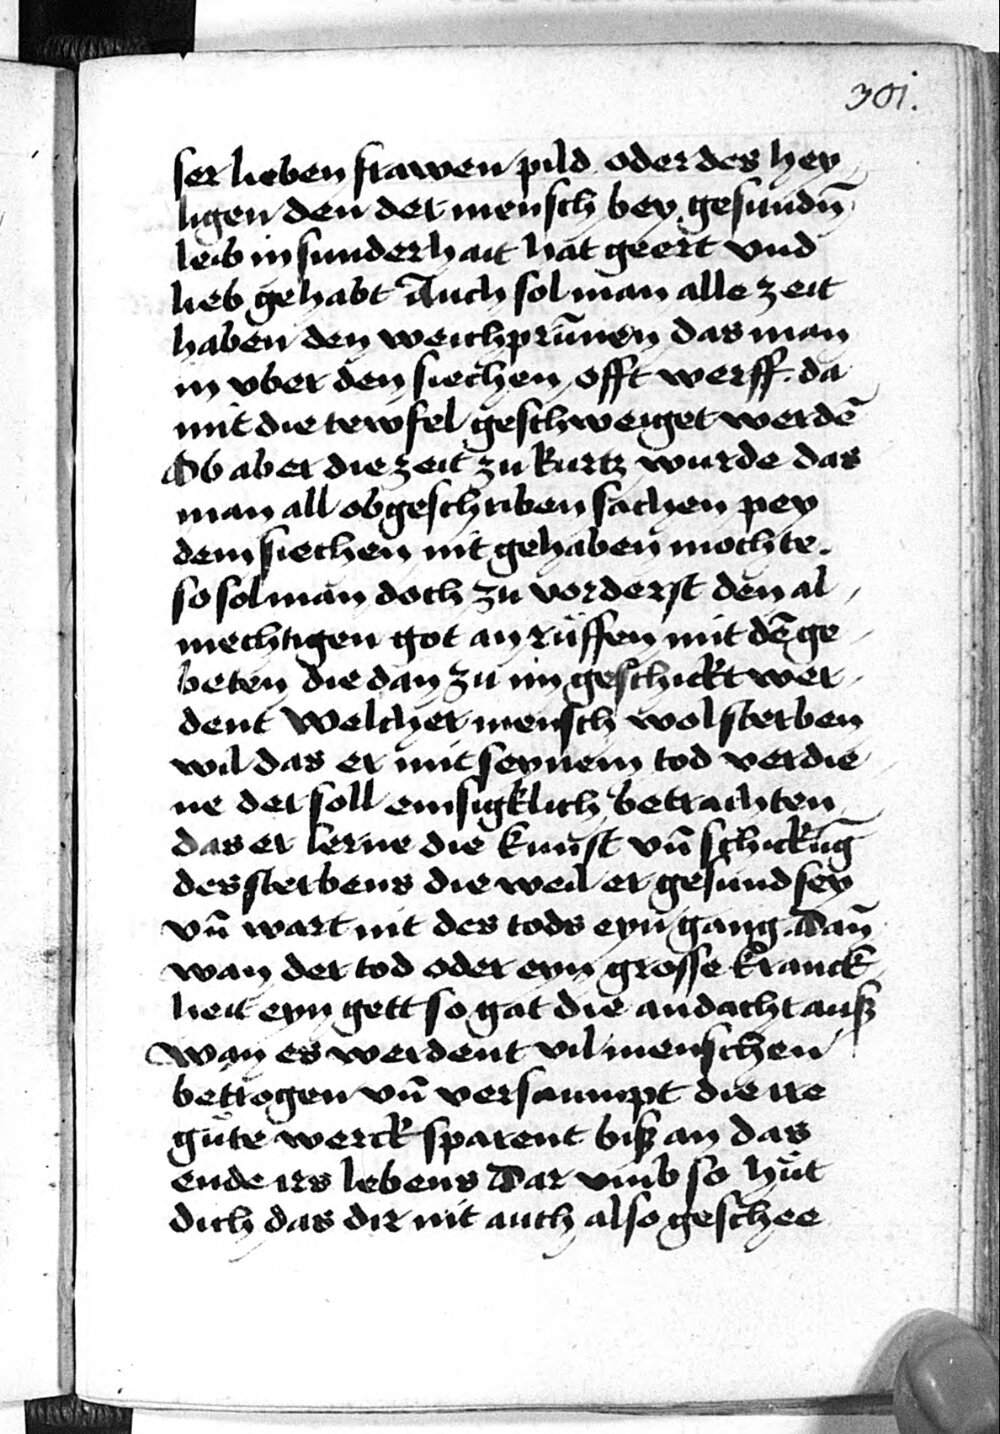 301.
ser lieben frawen pild oder des hey
ligen den der mensch bey gesundn̄
leib in sunderhait hat geert vnd
lieb gehabt Auch sol man alle zeit
haben den weichprūnen das man
in vber den siechen offt werff. da
mit die tewfel geschweiget werdē
Ob aber die zeit zu kurtz wurde das
man all obgeschriben sachen pey
dem siechen nit gehaben mochte.
so sol man doch zu vorderst den al
mechtigen got an rüffen mit dē ge
beten die dan zu im geschickt wer
dent Welcher mensch wol sterben
wil das er mit seynem tod verdie
ne der soll emsigklich betrachten
das er lerne die kunst vn̄ schickūg
des sterbens die weil er gesund sey
vn̄ wart nit des tods eyn gang. Dan̄
wan der tod oder eyn grosse kranck
heit eyn gett so gat die andacht auß
wan es werdent vil menschen
betrogen vn̄ versaumpt die ire
gůte werck sparent biß an das
ende irs lebens Dar vmb so hůt
dich das dir nit auch also geschee